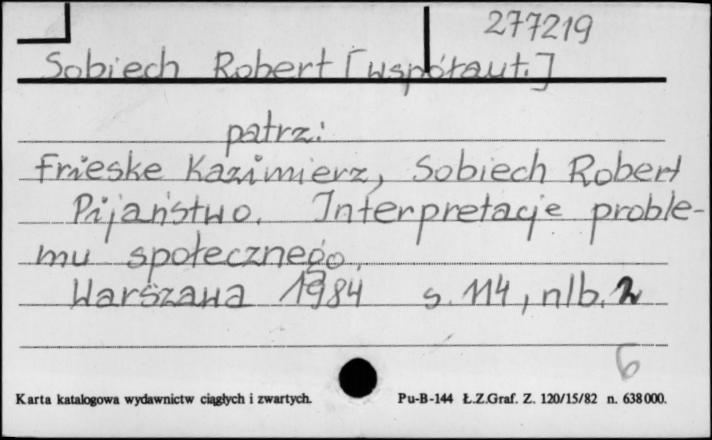 277219
Sobiech Robert [współaut.]
patrz:
Frieske Kazimierz, Sobiech Robert
Pijaństwo. Interpretacje proble-
mu społecznego.
Warszawa 1984 s. 114, nlb. 2
6
Karta katalogowa wydawnictw ciągłych i zwartych. Pu-B-144 Ł.Z.Graf. Z. 120/15/82 n. 638000.